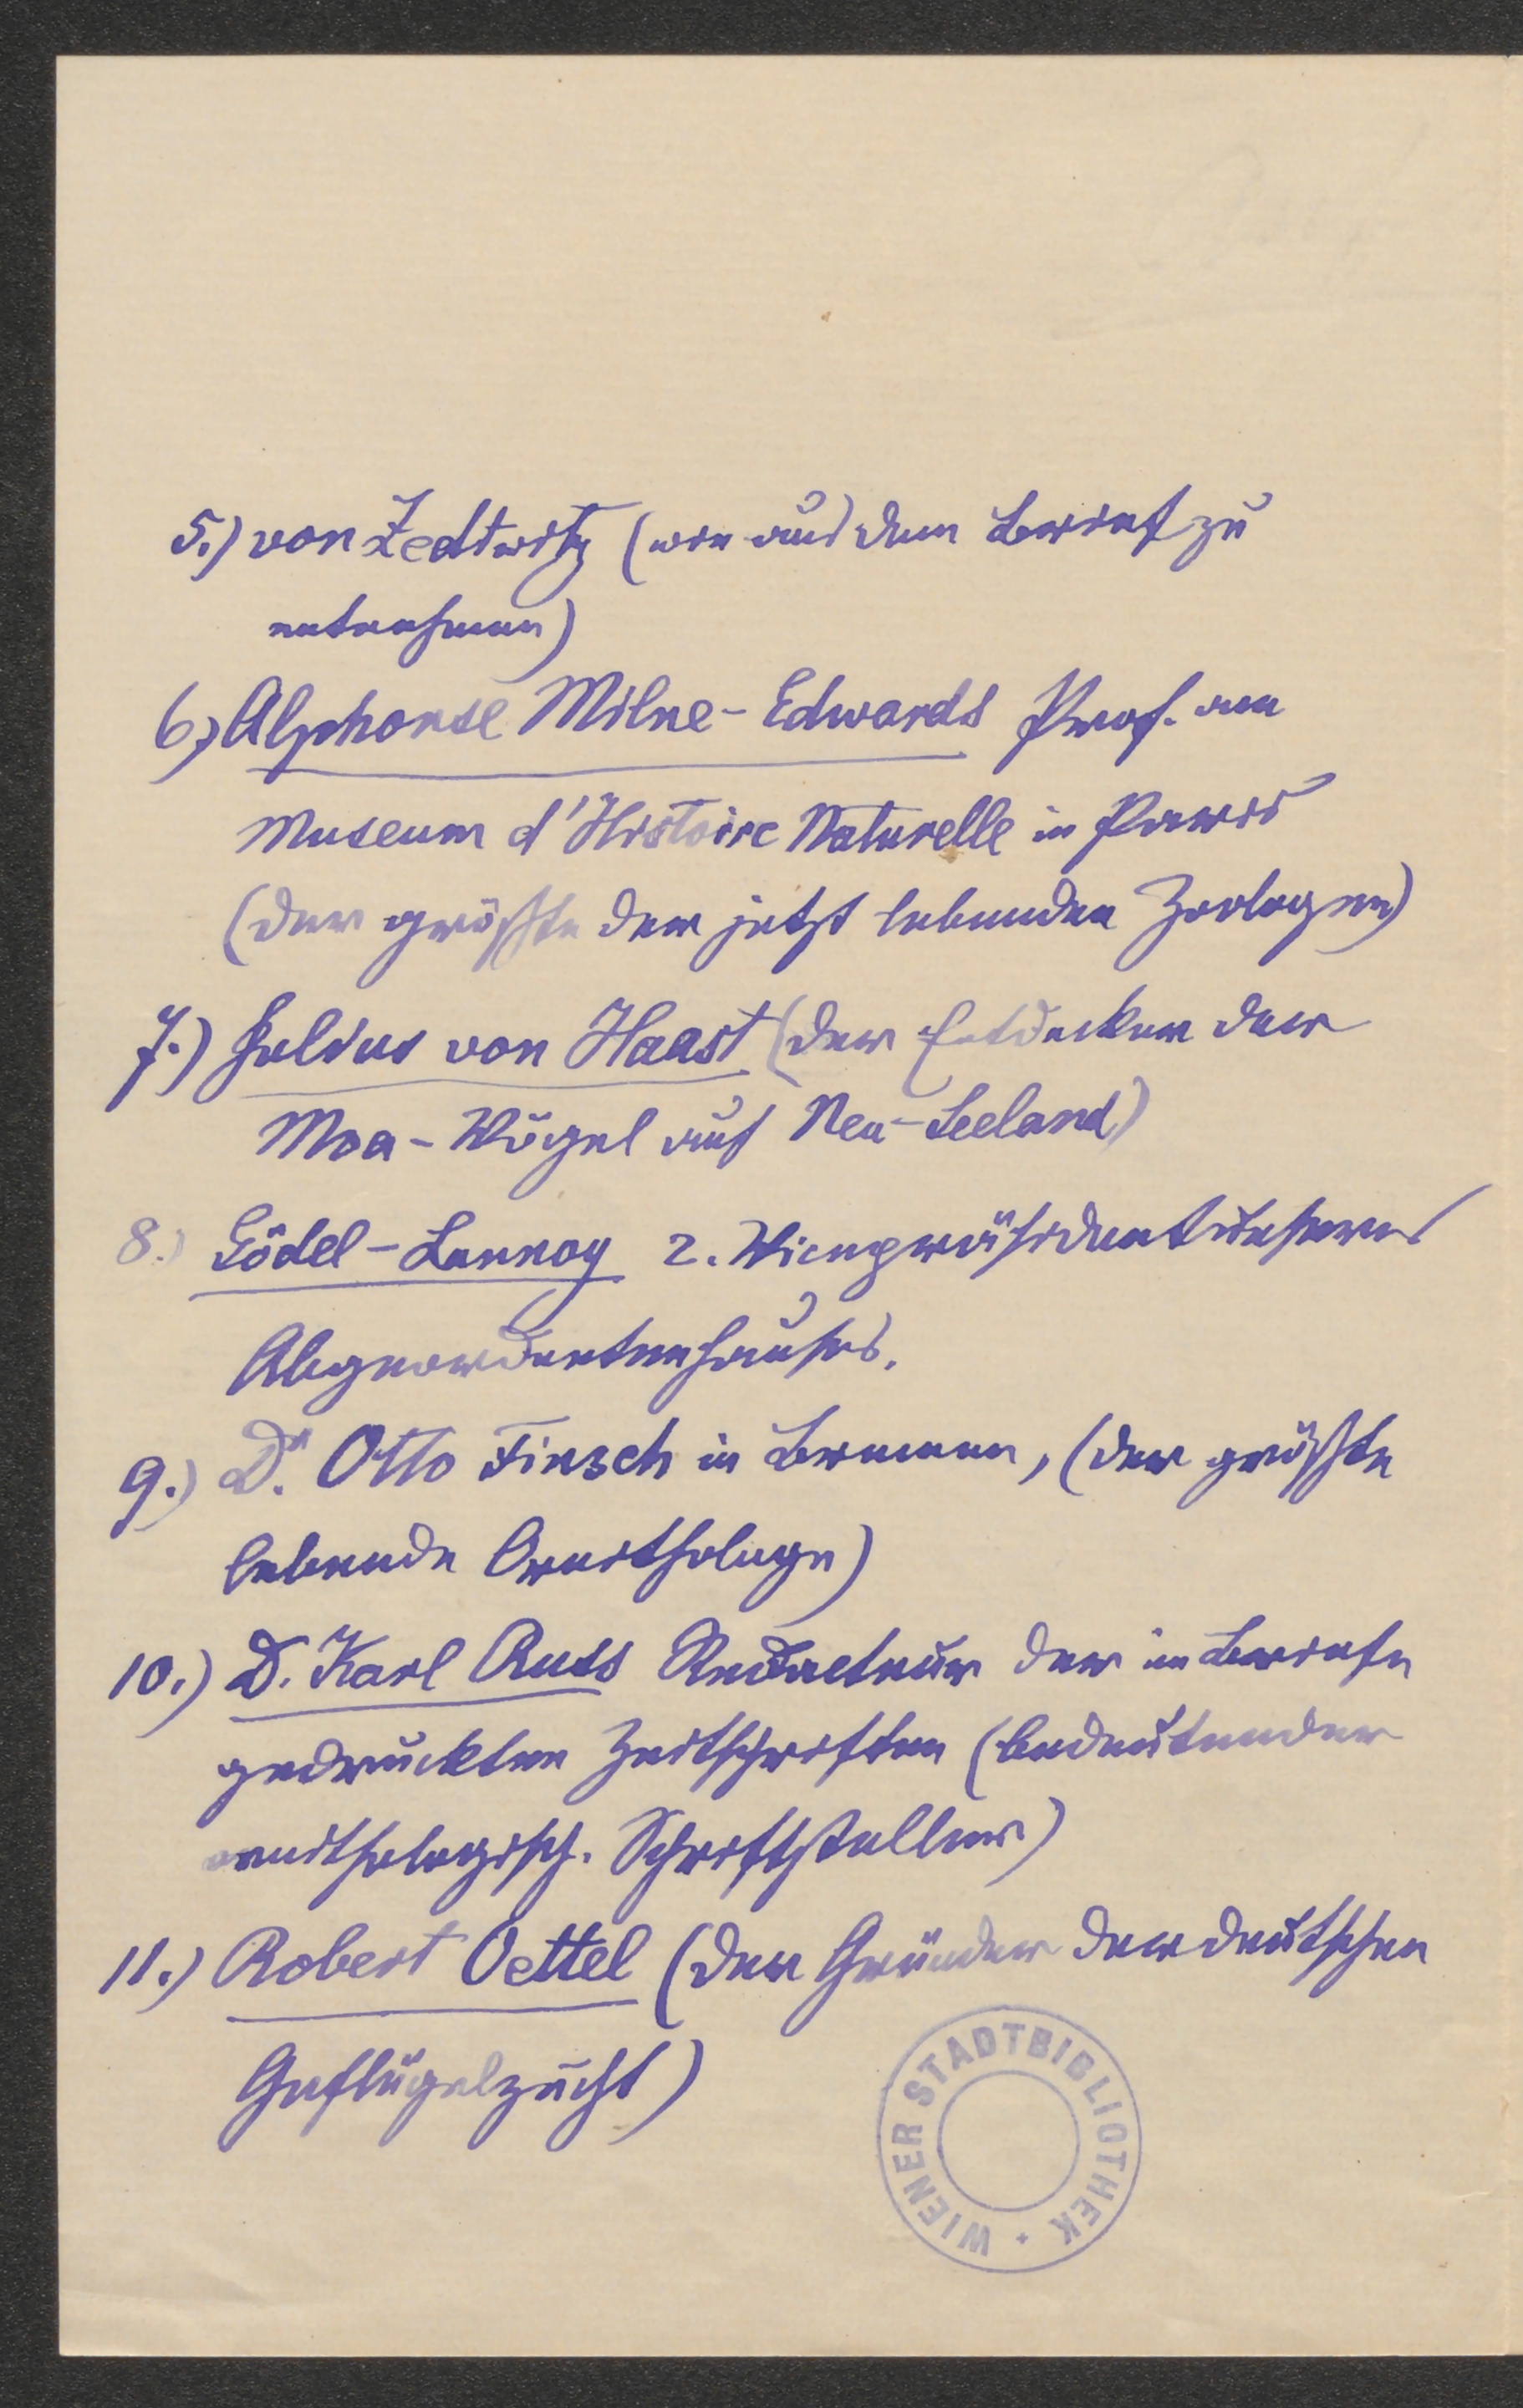 5.) von Zedtwitz (wie aus dem Brief zu
entnehmen)
6.) Alphonse Milne-Edwards Prof. am
Museum d'Histoire Naturelle in Paris
(der größte der jetzt lebenden Zoologen)
7.) Julius von Haast (der Entdecker der
Moa-Vögel auf Neu-Seeland)
8.) Gödel-Lannoy 2. Vicepräsident unseres
Abgeordnetenhauses.
9.) Dr. Otto Finsch in Bremen, (der größte
lebende Ornithologe)
10.) D. Karl Russ Redacteur der im Briefe
gedruckten Zeitschriften (bedeutender
ornithologisch. Schriftsteller)
11.) Robert Oettel (der Gründer der deutschen
Geflügelzucht)
WIENER STADTBIBLIOTHEK